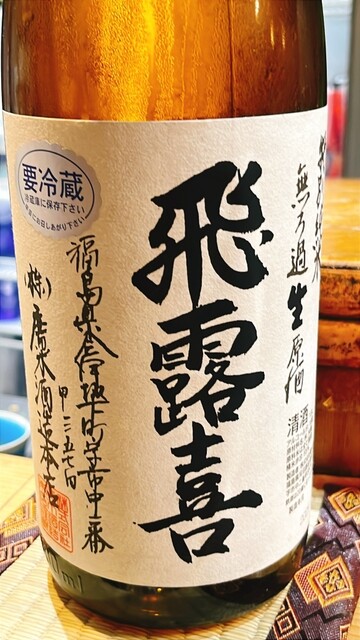 特別純米
無ろ過生原酒
飛露喜
清酒
要冷蔵
冷蔵庫に保存下さい
お召しあがり下さい
福島県会津坂下町字市中一番
甲三五七四
(株)廣木酒造本店
ml